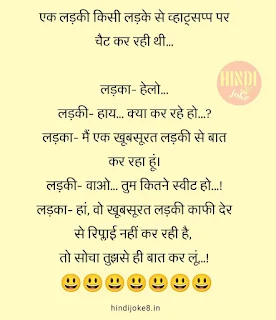 एक लड़की किसी लड़के से व्हाट्सप्प पर
चैट कर रही थी...
लड़का- हेलो...
लड़की- हाय... क्या कर रहे हो...?
लड़का- मैं एक खूबसूरत लड़की से बात
कर रहा हूं।
लड़की- वाओ... तुम कितने स्वीट हो...!
लड़का- हां, वो खूबसूरत लड़की काफी देर
से रिप्लाई नहीं कर रही है,
तो सोचा तुझसे ही बात कर लूं...!
HINDI
Joke
hindijoke8.in